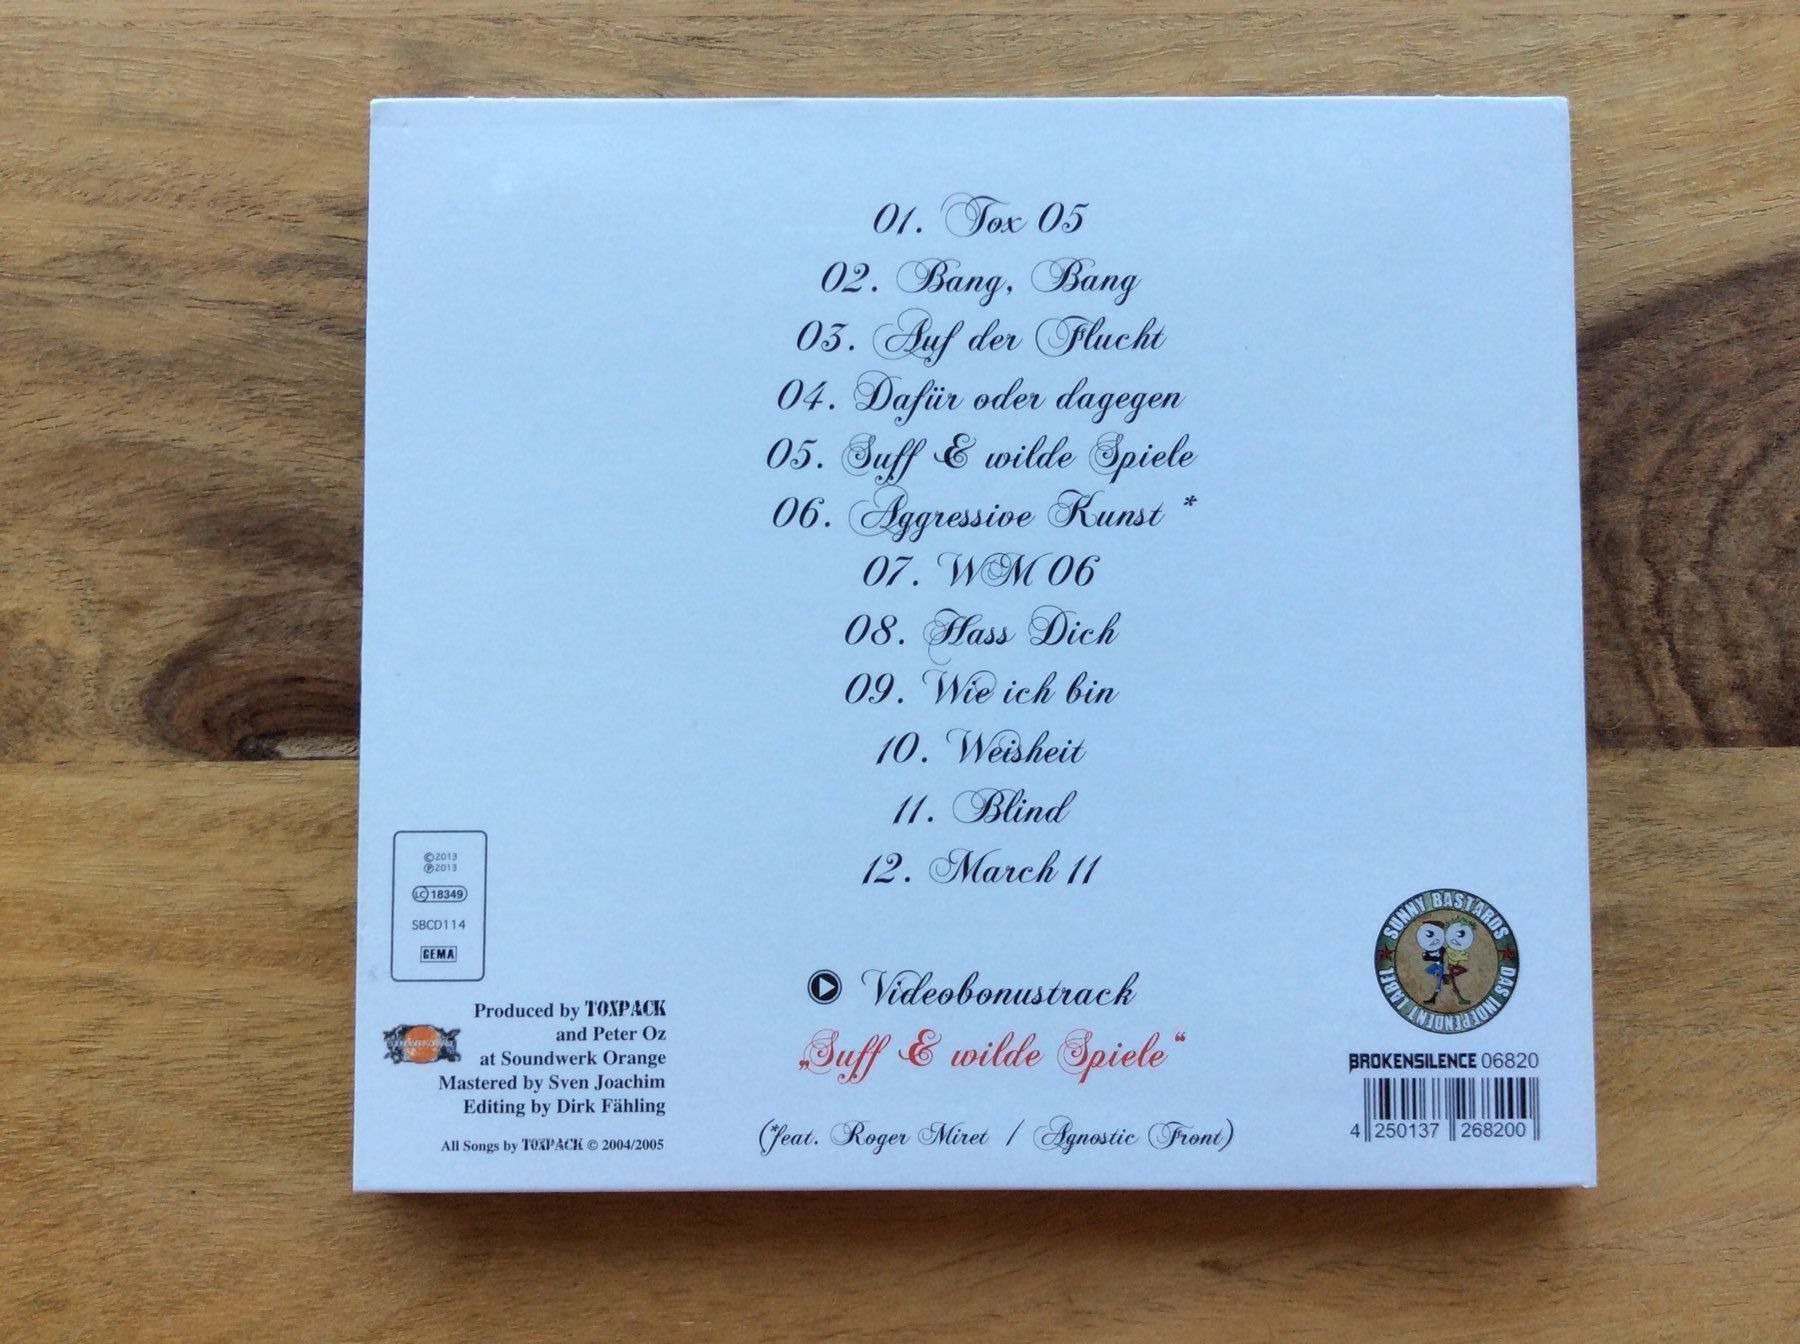 01. Tox 05
02. Bang, Bang
03. Auf der Flucht
04. Dafür oder dagegen
05. Suff & wilde Spiele
06. Aggressive Kunst *
07. WM 06
08. Hass Dich
09. Wie ich bin
10. Weisheit
11. Blind
12. March 11
Videobonustrack
„Suff & wilde Spiele“
(*feat. Roger Miret / Agnostic Front)
©2013
℗2013
LC 18349
SBCD114
GEMA
Produced by TOXPACK
and Peter Oz
at Soundwerk Orange
Mastered by Sven Joachim
Editing by Dirk Fähling
All Songs by TOXPACK © 2004/2005
SOUNDWERK ORANGE
SUNNY BASTARDS
DAS INDEPENDENT LABEL
BROKENSILENCE 06820
4 250137 268200